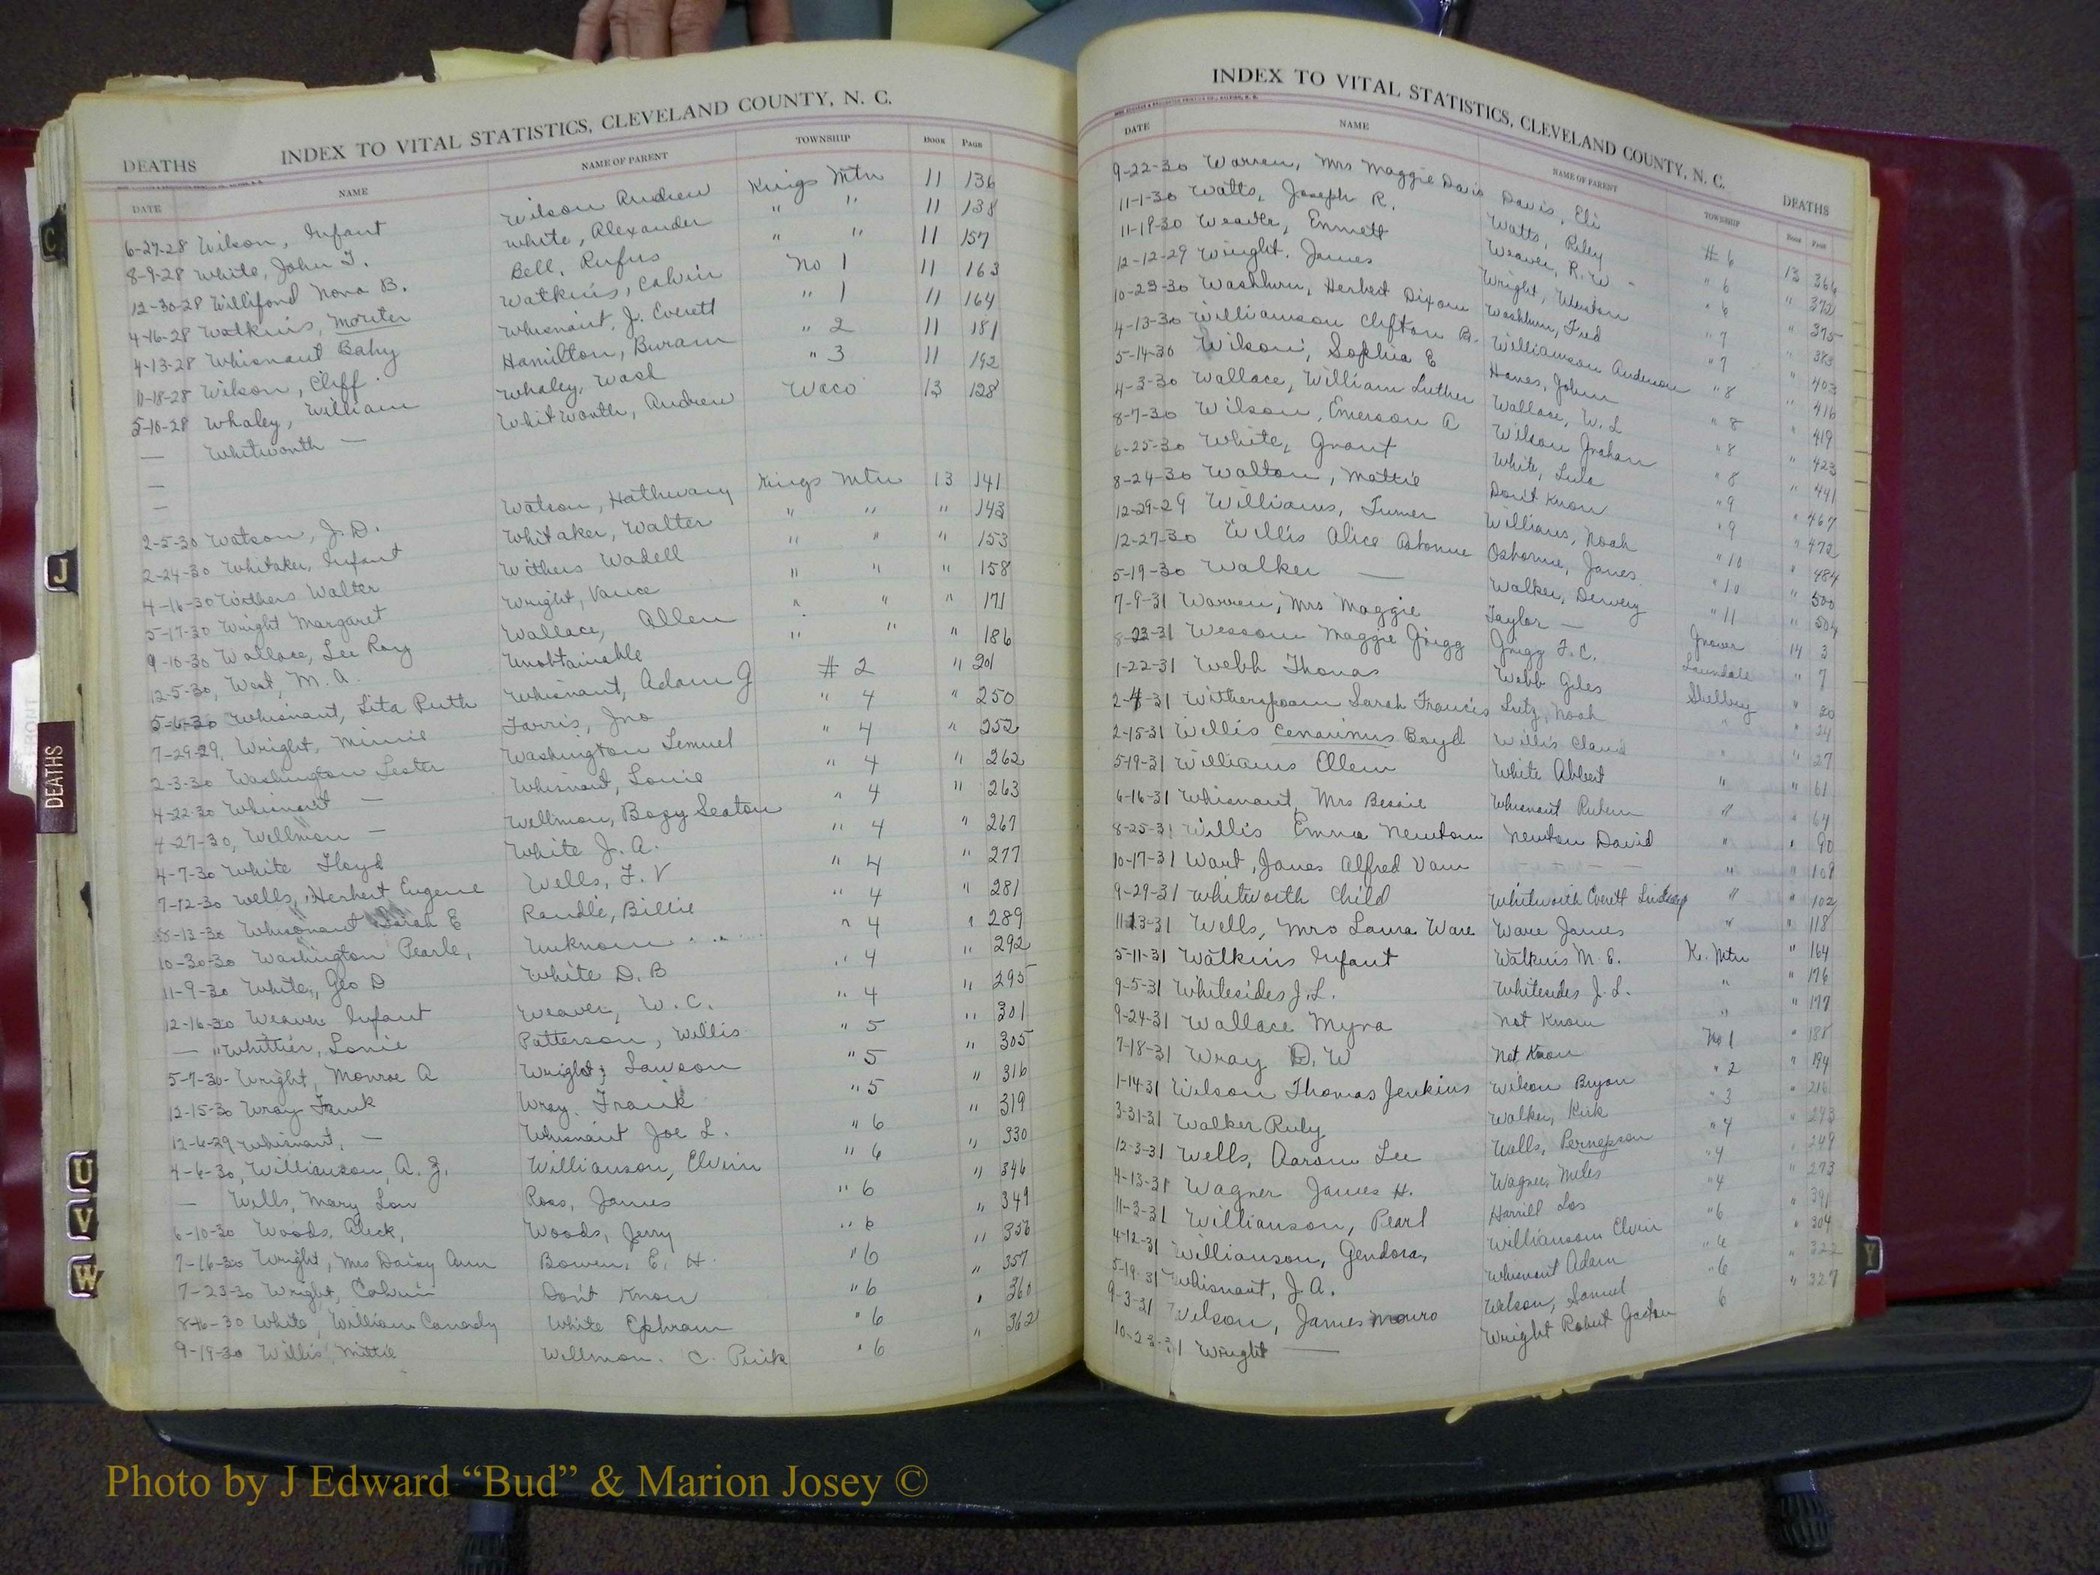 INDEX TO VITAL STATISTICS, CLEVELAND COUNTY, N. C.
DEATHS
DATE NAME NAME OF PARENT TOWNSHIP BOOK PAGE
6-27-28 Wilson, Infant Wilson Andrew Kings Mtn 11 136
8-9-28 White, John T. White, Alexander " " 11 138
12-30-28 Williford Nora B. Bell, Rufus " " 11 157
4-16-28 Watkins, Moriter Watkins, Calvin No 1 11 163
4-13-28 Whisnant Baby Whisnant, J. Everett " 1 11 164
11-18-28 Wilson, Cliff. Hamilton, Buram " 2 11 181
5-10-28 Whaley, William Whaley, Wash " 3 11 192
— Whitworth — Whitworth, Andrew Waco 13 128
—
—
2-5-30 Watson, J. D. Watson, Hathway Kings Mtn 13 141
2-24-30 Whitaker, Infant Whitaker, Walter " " " 143
4-16-30 Withers Walter Withers Wadell " " " 153
5-17-30 Wright Margaret Wright, Vance " " " 158
9-10-30 Wallace, Lee Roy Wallace, Allen " " " 171
12-5-30, West, M. A. Unobtainable " " " 186
5-6-30 Whisnant, Lita Ruth Whisnant, Adam G # 2 " 201
7-29-29, Wright, Minnie Farris, Jno " 4 " 250
2-3-30 Washington Lester Washington Lemuel " 4 " 252
4-22-30 Whisnant — Whisnant, Lonie " 4 " 262
4-27-30, Wellmon — Wellmon, Bozy Seaton " 4 " 263
4-7-30 White Floyd White J. A. " 4 " 267
7-12-30 Wells, Herbert Eugene Wells, F. V " 4 " 277
8-13-30 Whisonant Sarah E Randle, Billie " 4 " 281
10-30-30 Washington Pearle, Unknown " 4 " 289
11-9-30 White, Geo D White D. B " 4 " 292
12-16-30 Weaver Infant Weaver, W. C. " 4 " 295
— " Whittier, Lonie Patterson, Willis " 5 " 301
5-7-30- Wright, Monroe A Wright, Lawson " 5 " 305
12-15-30 Wray Frank Wray, Frank " 5 " 316
12-6-29 Whisnant, — Whisnant Joe L. " 6 " 319
4-6-30, Williamson, A. Z. Williamson, Elvin " 6 " 330
— Wells, Mary Lou Ross, James " 6 " 346
6-10-30 Woods, Aleck, Woods, Jerry " 6 " 349
7-16-30 Wright, Mrs Daisy Ann Bowen, E. H. " 6 " 356
7-23-30 Wright, Calvin Don't Know " 6 " 357
8-16-30 White, William Canady White Ephram " 6 " 360
9-19-30 Willis, Mittie Wellmon, C. Pink " 6 " 362
INDEX TO VITAL STATISTICS, CLEVELAND COUNTY, N. C.
DEATHS
DATE NAME NAME OF PARENT TOWNSHIP BOOK PAGE
9-22-30 Warren, Mrs Maggie Davis Davis, Eli # 6 13 366
11-1-30 Watts, Joseph R. Watts, Riley " 6 " 372
11-19-30 Weaver, Emmett Weaver, R. W " 6 " 375
12-12-29 Wright, James Wright, Weston " 7 " 383
10-23-30 Washburn, Herbert Dixon Washburn, Fred " 7 " 403
4-13-30 Williamson Clifton B. Williamson Anderson " 8 " 416
5-14-30 Wilson, Sophia E Hanes, John " 8 " 419
4-3-30 Wallace, William Luther Wallace, W. L " 8 " 423
8-7-30 Wilson, Emerson A Wilson Graham " 8 " 441
6-25-30 White, Grant White, Lula " 9 " 467
8-24-30 Walton, Mattie Don't Know " 9 " 472
12-29-29 Williams, Turner Williams, Noah " 10 " 484
12-27-30 Willis Alice Osborne Osborne, James " 10 " 500
5-19-30 Walker — Walker, Dewey " 11 " 504
7-9-31 Warren, Mrs Maggie Taylor — Grover 14 3
8-23-31 Wessom Maggie Grigg Grigg F. C. Lawndale " 7
1-22-31 Webb Thomas Webb Giles Shelby " 20
2-4-31 Witherspoon Sarah Francis Lutz, Noah " " 24
2-15-31 Willis Cenarinus Boyd Willis Claud " " 27
5-19-31 Williams Ellen White Abbert " " 61
6-16-31 Whisnant, Mrs Bessie Whisnant Rubern " " 64
8-25-31 Willis Emma Newton Newton David " " 90
10-17-31 Wart, James Alfred Vann — — — " " 109
9-29-31 Whitworth Child Whitworth Everett Lindsay " " 102
11-13-31 Wells, Mrs Laura Ware Ware James " " 118
5-11-31 Watkins Infant Watkins M. E. K. Mtn " 164
9-5-31 Whitesides J. L. Whitesides J. L. " " 176
9-24-31 Wallace Myra Not Know " " 177
7-18-31 Wray D. W Not Know No 1 " 188
1-14-31 Wilson Thomas Jenkins Wilson Bryon " 2 " 194
3-31-31 Walker Ruby Walker, Kirk " 3 " 216
12-3-31 Wells, Aaron Lee Walls, Pernepson " 4 " 243
4-13-31 Wagner James H. Wagner Miles " 4 " 249
11-2-31 Williamson, Pearl Harrill Los " 4 " 273
4-12-31 Williamson, Gendora, Williamson Elvin " 6 " 291
5-19-31 Whisnant, J. A. Whisnant Adam " 6 " 304
9-3-31 Wilson, James Monro Wilson, Samuel " 6 " 322
10-23-31 Wright — Wright Robert Jackson 6 " 327
C
J
DEATHS
U
V
W
Y
Photo by J Edward “Bud” & Marion Josey ©